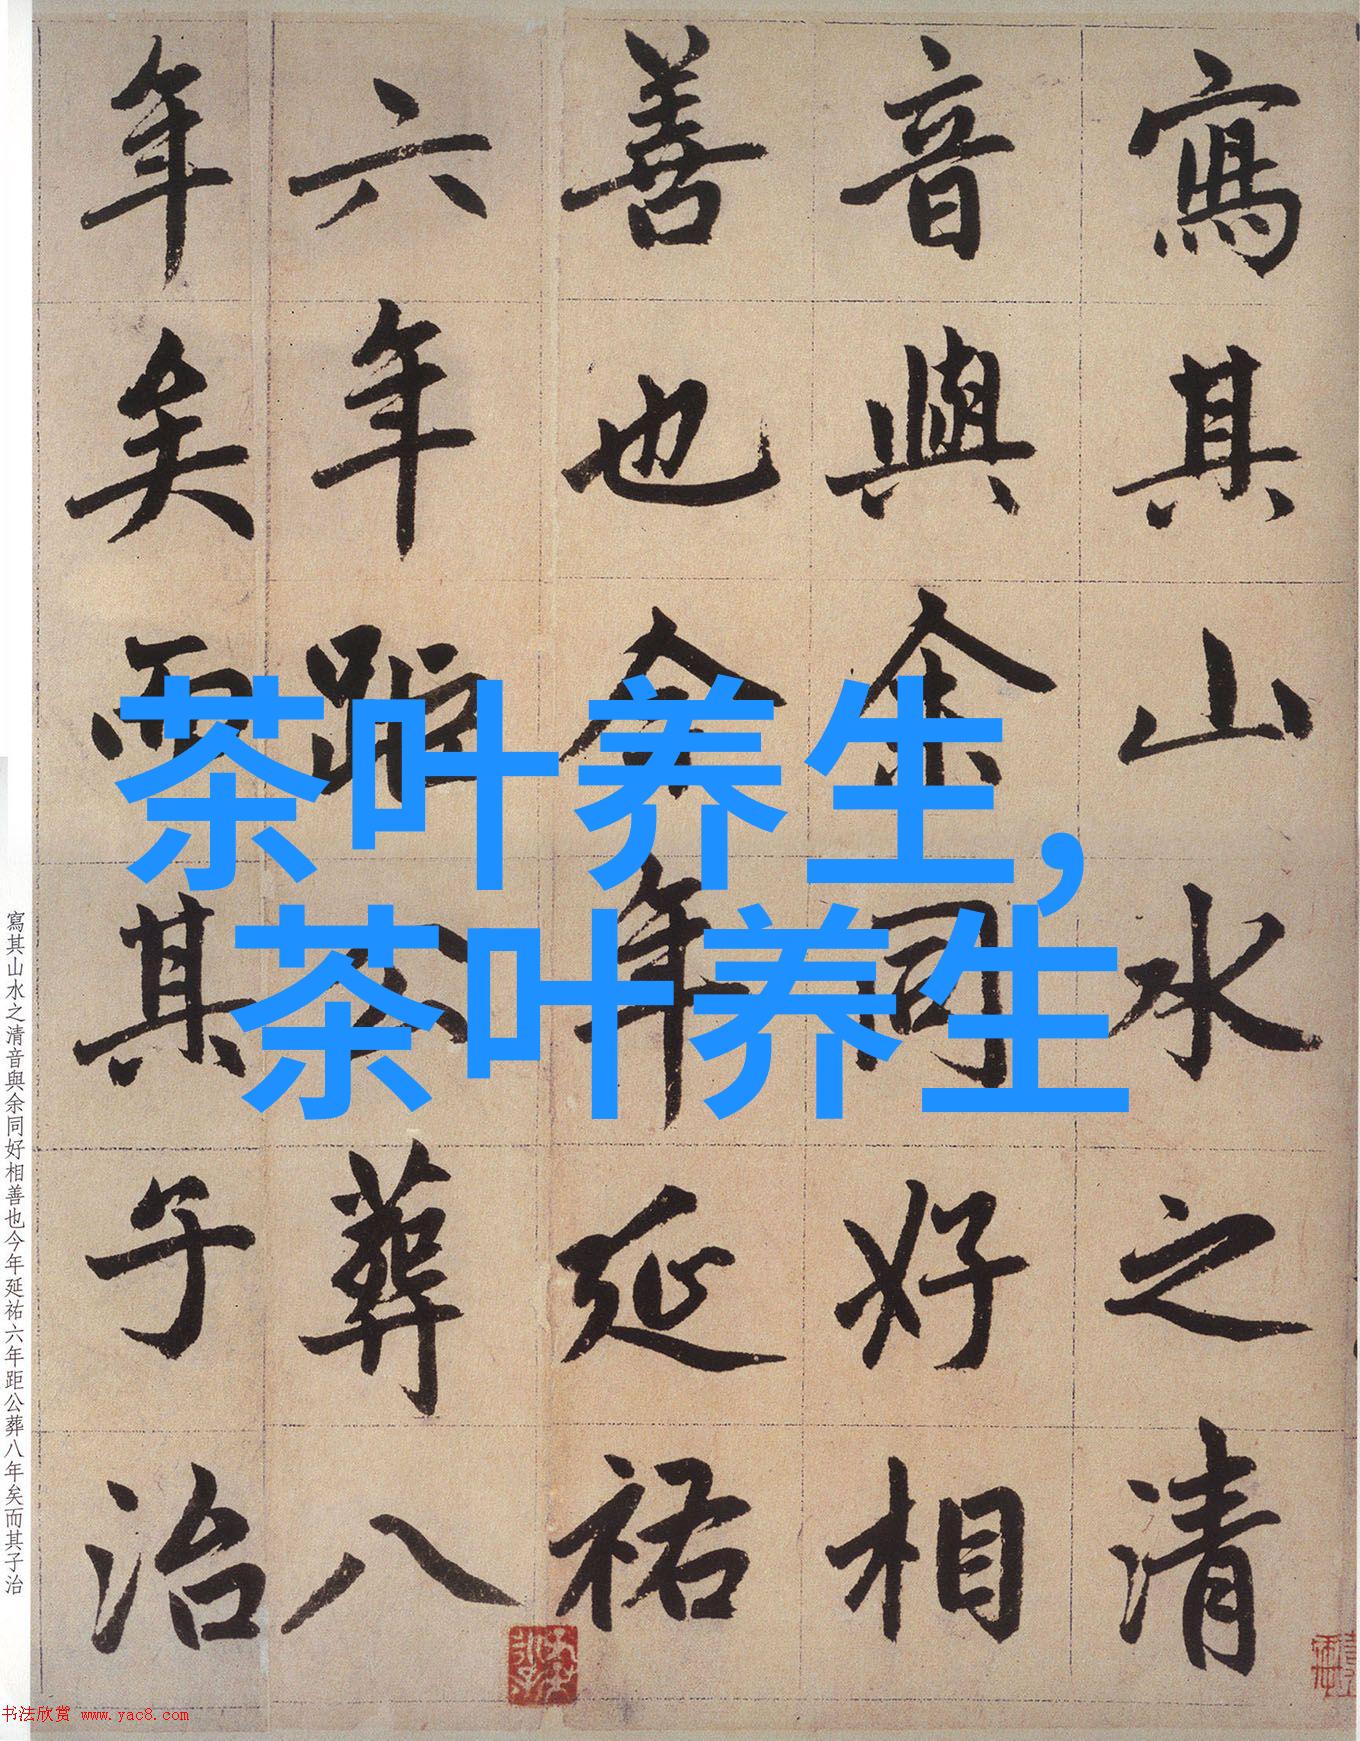 寫其山水之清
音與余同好相
善也今年延祐
六年距公葬八
年矣而其子治
茶叶养生,
茶叶养生
寫其山水之清音與余同好相善也今年延祐六年距公葬八年矣而其子治
书法欣赏 www.yac8.com